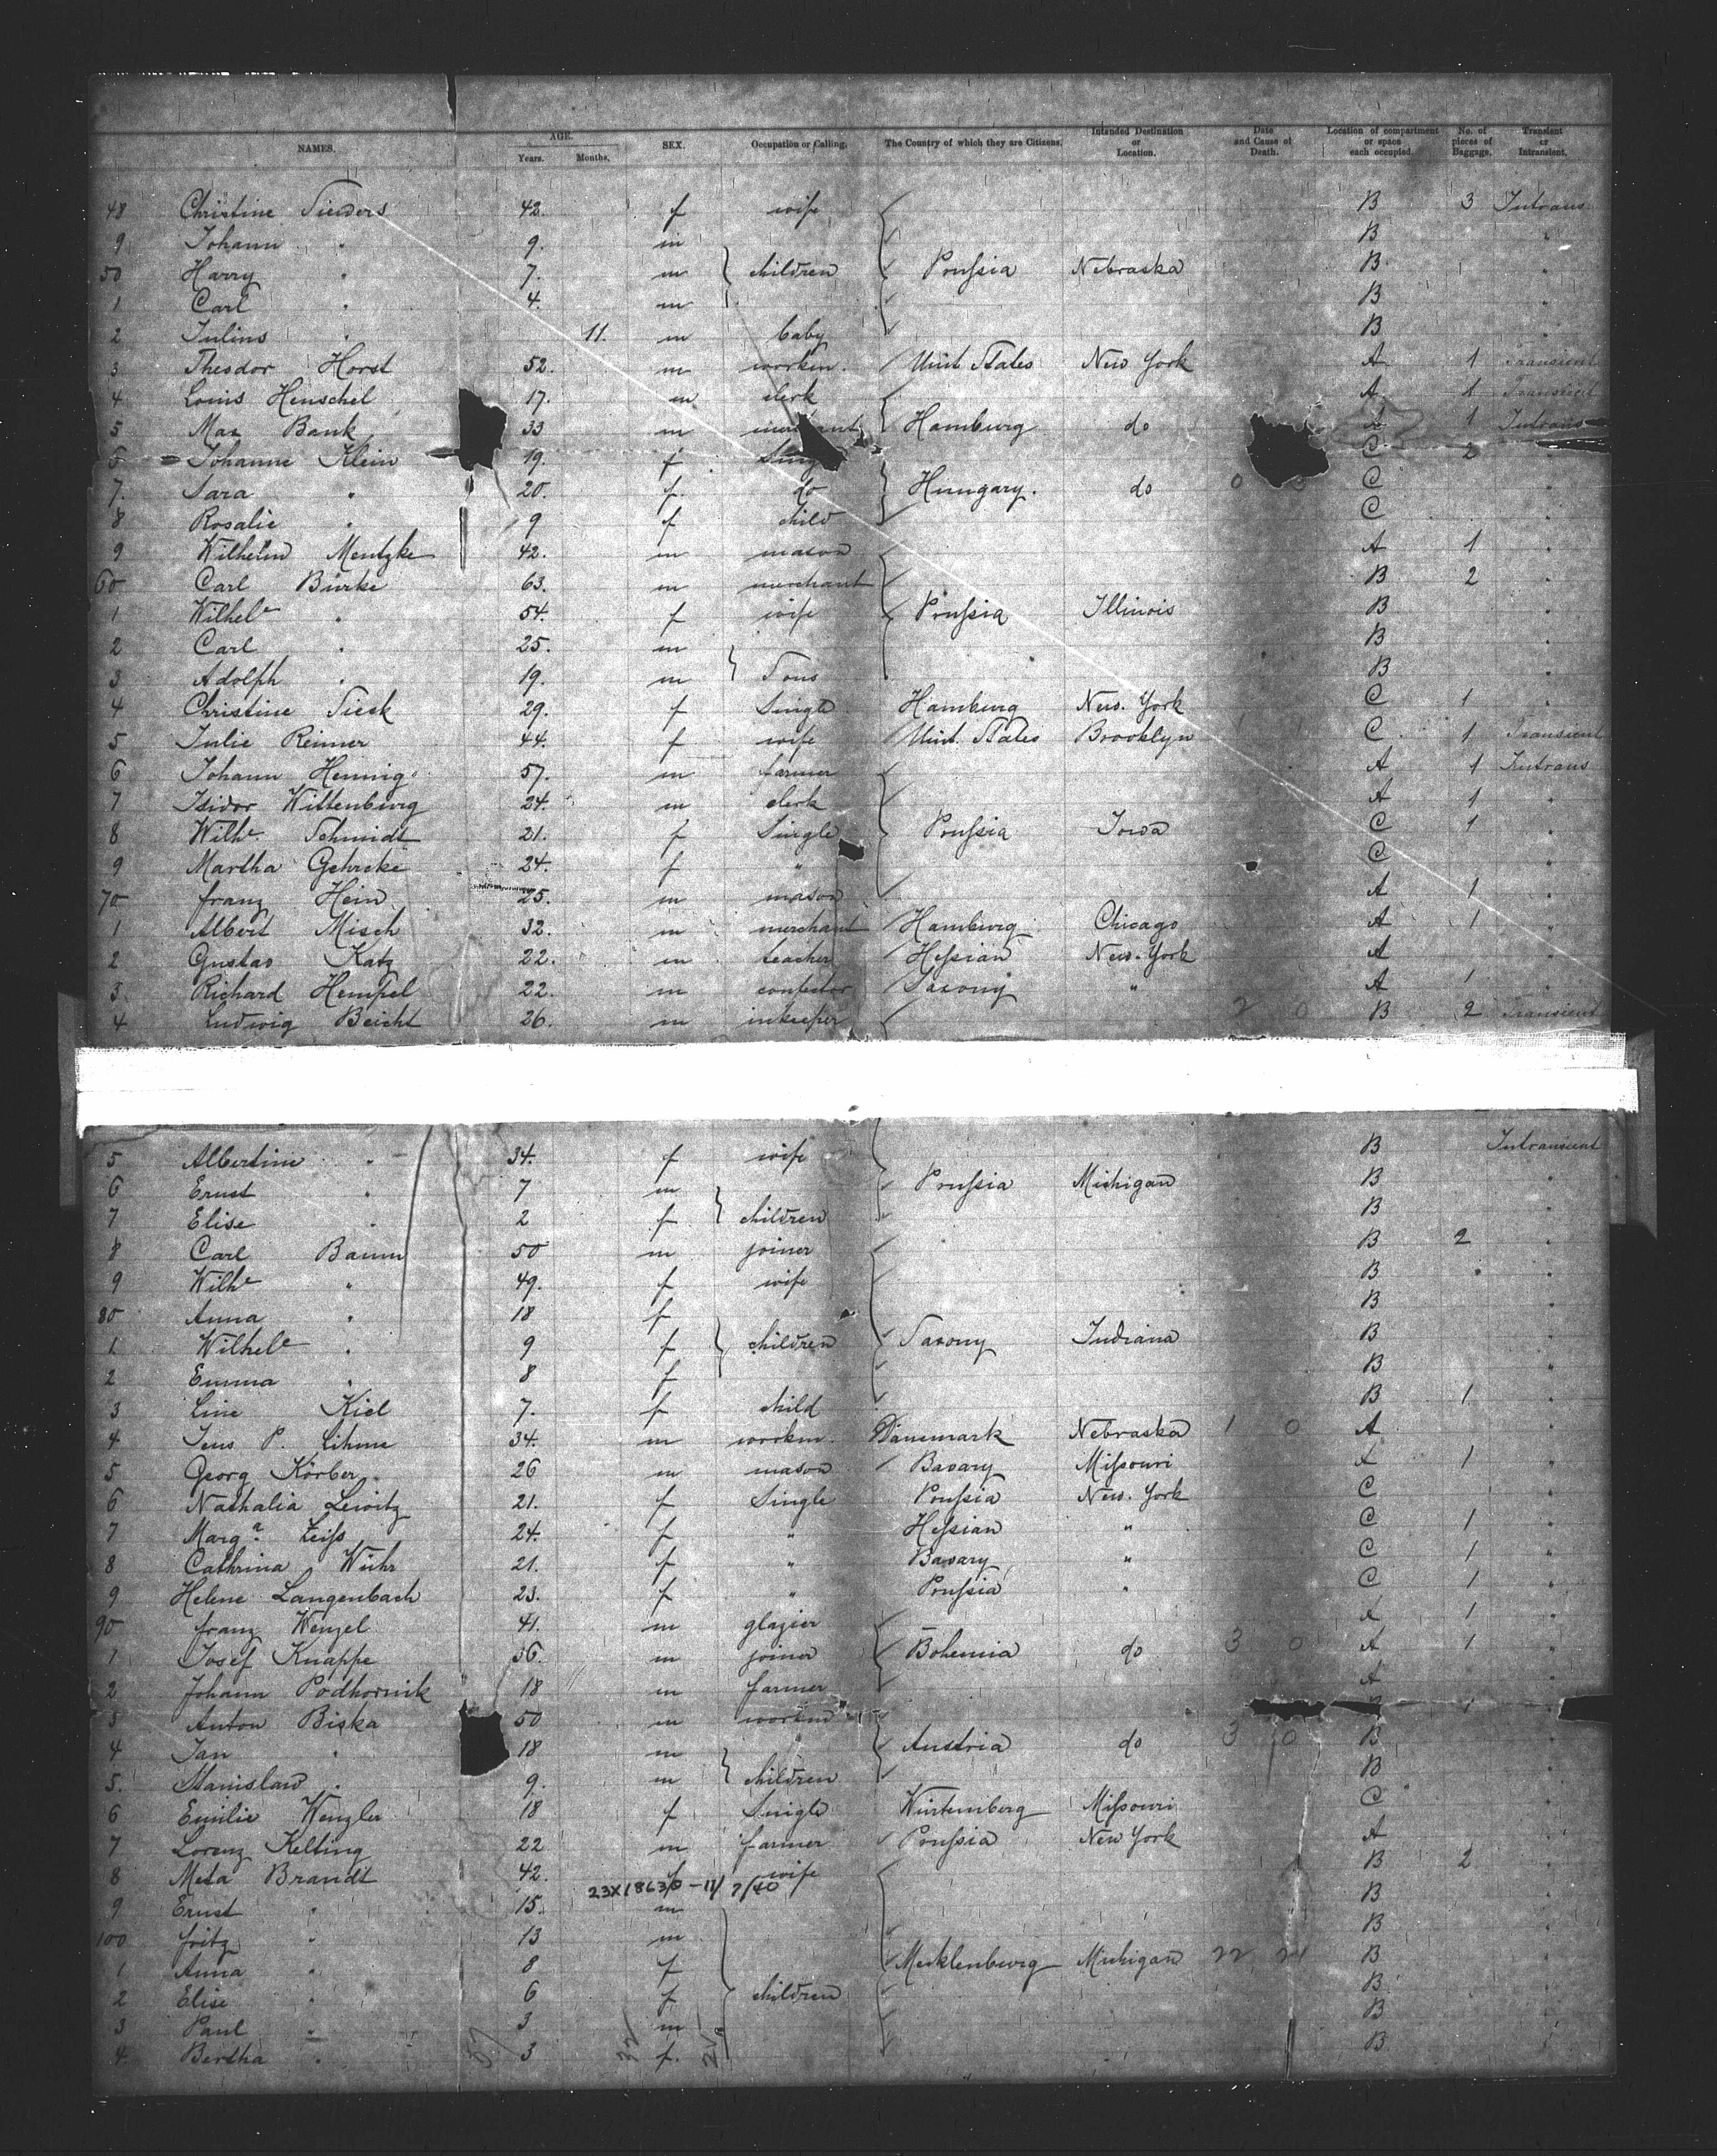 NAMES. AGE. Years. Months. SEX. Occupation or Calling. The Country of which they are Citizens. Intended Destination or Location. Date and Cause of Death. Location of compartment or space each occupied. No. of pieces of Baggage. Transient or Intransient.
48 Christine 42. f wife B 3 Intrans
9 Johann " 9. m B "
50 Harry " 7. m children Prussia Nebraska B "
1 Carl " 4. m B "
2 Julius " 11. m baby B "
3 Theodor Horst 52. m workm. Unit States New York A 1 Transient
4 Louis Henschel 17. m clerk A 1 Transient
5 Max Bank 33 m merchant Hamburg do A 1 Intrans
6 Johanne Klein 19. f Sing C 2
7. Sara " 20. f. do Hungary. do 0 3 C "
8 Rosalie " 9 f child C "
9 Wilhelm Mentzke 42. m mason A 1 "
60 Carl Bürke 63. m merchant B 2 "
1 Wilhel e " 54. f wife Prussia Illinois B "
2 Carl " 25. m B "
3 Adolph " 19. m Sons B "
4 Christine Sieck 29. f Single Hamburg New. York C 1 "
5 Julie Reimer 44. f wife Unit. States Brooklyn C 1 Transient
6 Johann Hennig 57. m farmer A 1 Intrans
7 Isidor Wittenberg 24. m clerk A 1 "
8 Wilh e Schmidt 21. f Single Prussia Iowa C 1 "
9 Martha Gehrcke 24. f " C "
70 franz Hein 25. m mason A 1 "
1 Albert Misch 32. m merchant Hamburg Chicago A 1 "
2 Gustav Katz 22. m teacher Hessian New. York A "
3. Richard Hempel 22. m confector Saxony " A 1 "
4 Ludwig Beicht 26. m inkeeper 2 0 B 2 Transient
5 Albertine " 34. f wife B Intransient
6 Ernst " 7 m Prussia Michigan B "
7 Elise " 2 f children B "
8 Carl Baum 50 m joiner B 2 "
9 Wilh e " 49. f wife B "
80 Anna " 18 f B "
1 Wilhel e " 9 f children Saxony Indiana B "
2 Emma " 8 f B "
3 Line Kiel 7. f child B 1 "
4 Jens P. Lihme 34. m workm. Danemark Nebraska 1 0 A "
5 Georg Körber. 26 m mason Bavary Missouri A 1 "
6 Nathalia Lewitz 21. f Single Prussia New. York C "
7 Marg a. Zeiss 24. f " Hessian " C 1 "
8 Cathrina Wühr 21. f " Bavary " C 1 "
9 Helene Langenbach 23. f " Prussia " C 1 "
90 franz Wenzel 41. m glazier A 1 "
1 Josef Knappe 36. m joiner Bohemia do 3 0 A 1 "
2 Johann Podhornik 18 m farmer A "
3 Anton Biska 50 m workm 1
4 Jan " 18 m Austria do 3 0 B "
5. Stanislaw " 9. m children B "
6 Emilie Wenzler 18 f Single Würtemberg Missouri C "
7 Lorenz Kelting 22 m farmer Prussia New York A "
8 Meta Brandt 42. f wife B 2 "
23X186310-11/7/40
9 Ernst " 15. m B "
100 fritz " 13 m B "
1 Anna " 8 f Mecklenburg Michigan B "
2 Elise " 6 f children B "
3 Paul " 3 m B "
4. Bertha " 3 f. B "